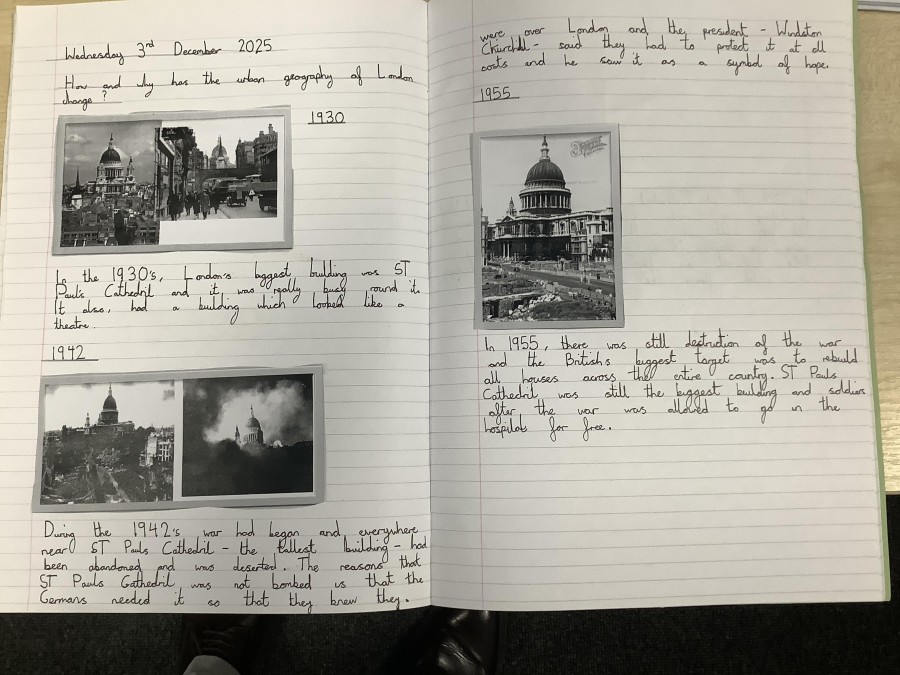 Wednesday 3rd December 2025
How and why has the urban geography of London
change?
1930
In the 1930's, London's biggest building was ST
Paul's Cathedril and it was really busy round it.
It also, had a building which looked like a
theatre.
1942
During the 1942's war had began and everywhere
near ST Pauls Cathedril - the tallest building - had
been abandoned and was deserted. The reasons that
ST Pauls Cathedril was not bombed is that the
Germans needed it so that they knew they.
were over London and they president - Windston
Churchill - said they had to protect it at all
costs and he saw it as a symbol of hope.
1955
In 1955, there was still destruction of the war
and the British's biggest target was to rebuild
all houses across the entire country. ST Pauls
Cathedril was still the biggest building and soldiers
after the war was allowed to go in the
hospitals for free.